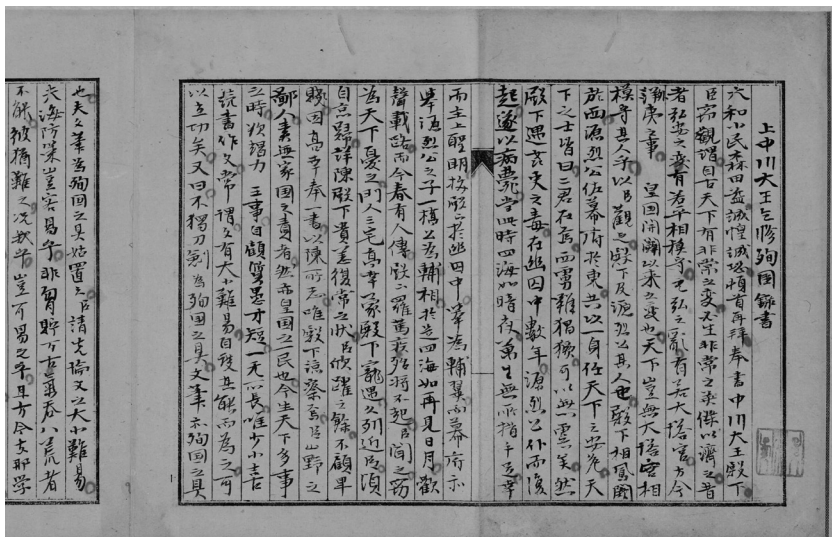 上中川大王乞修殉国録書
六和小民森田益誠惶誠恐頓首再拝奉書中川大王殿下
臣窃観謂自古天下有非常之変必生非常之豪傑以済之昔
者弘安之変有若平相模守元弘之乱有若大塔宮方今
庚之事 皇国開闢以来之変也天下豈無大塔宮相
模守其人乎以臣観之殿下及源烈公其人也殿下相鳳闕
於西源烈公佐幕府於東共以一身任天下之安危天
下之士皆曰二君在焉西虜雖獗可以無虞矣然
殿下遇讒吏之毒在幽囚中数年源烈公仆而復
起遂以病薨当此時四海如暗夜万生無所指手足幸
而主上聖明擢殿下於幽囚中以為輔翼而幕府亦
挙源烈公之子一橋公為輔相於是四海如再見日月歓
声載路而今春有人伝殿下罹篤疾殆将不起臣聞之窃
為天下憂之同人三宅高幸以蒙殿下寵遇久列近臣頃
自京帰詳陳殿下貴恙復常之状臣欣躍之余不顧卑
賤因高幸奉書以陳所志唯殿下諒察焉臣山野之
鄙人実無家国之責者然亦皇国之民也今生天下多事
之時欲竭力 王事自顧質愚才短一無所長唯少小喜
読書作文常謂文有大小難易自殊其能而為之可
以立功矣又曰不独刀剣為殉国之具文筆亦殉国之具
也夫文筆為殉国之具姑置之臣請先論文之大小難易
夫海防策豈容易乎非胸貯万古気呑八荒者
不能彼攘難之況我乎豈可易之乎且方今支那学